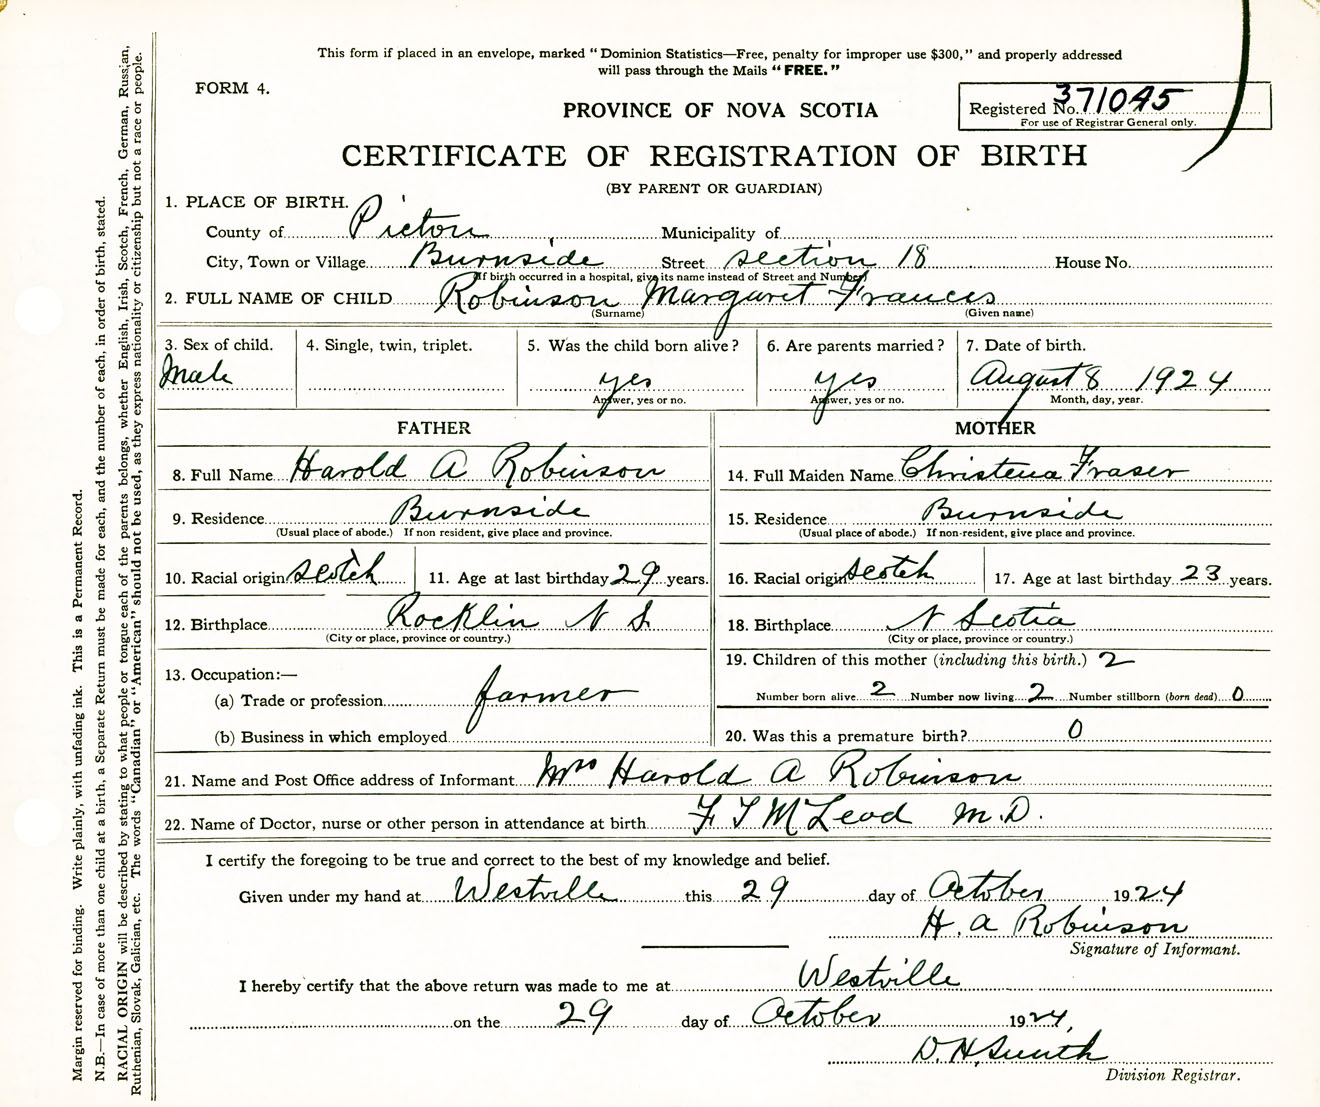 This form if placed in an envelope, marked "Dominion Statistics—Free, penalty for improper use $300," and properly addressed
will pass through the Mails "FREE."
FORM 4.
PROVINCE OF NOVA SCOTIA
Registered No. 371045
For use of Registrar General only.
CERTIFICATE OF REGISTRATION OF BIRTH
(BY PARENT OR GUARDIAN)
1. PLACE OF BIRTH.
County of Pictou Municipality of
City, Town or Village Burnside Street section 18 House No.
(If birth occurred in a hospital, give its name instead of Street and Number)
2. FULL NAME OF CHILD Robinson Margaret Frances
(Surname) (Given name)
3. Sex of child. 4. Single, twin, triplet. 5. Was the child born alive? 6. Are parents married? 7. Date of birth.
Male yes yes August 8 1924
Answer, yes or no. Answer, yes or no. Month, day, year.
FATHER MOTHER
8. Full Name Harold A Robinson 14. Full Maiden Name Christena Fraser
9. Residence Burnside 15. Residence Burnside
(Usual place of abode.) If non resident, give place and province. (Usual place of abode.) If non-resident, give place and province.
10. Racial origin scotch 11. Age at last birthday 29 years. 16. Racial origin scotch 17. Age at last birthday 23 years.
12. Birthplace Rocklin N S. 18. Birthplace N Scotia
(City or place, province or country.) (City or place, province or country.)
13. Occupation:— 19. Children of this mother (including this birth.) 2
(a) Trade or profession farmer Number born alive 2 Number now living 2 Number stillborn (born dead) 0
(b) Business in which employed 20. Was this a premature birth? 0
21. Name and Post Office address of Informant Mrs Harold A Robinson
22. Name of Doctor, nurse or other person in attendance at birth F T McLeod M.D.
I certify the foregoing to be true and correct to the best of my knowledge and belief.
Given under my hand at Westville this 29 day of October 1924
H. A Robinson
Signature of Informant.
I hereby certify that the above return was made to me at Westville
on the 29 day of October 1924,
D. H. Smith
Division Registrar.
Margin reserved for binding. Write plainly, with unfading ink. This is a Permanent Record.
N.B.—In case of more than one child at a birth, a Separate Return must be made for each, and the number of each, in order of birth, stated.
RACIAL ORIGIN will be described by stating to what people or tongue each of the parents belongs, whether English, Irish, Scotch, French, German, Russian,
Ruthenian, Slovak, Galician, etc. The words "Canadian" or "American" should not be used, as they express nationality or citizenship but not a race or people.